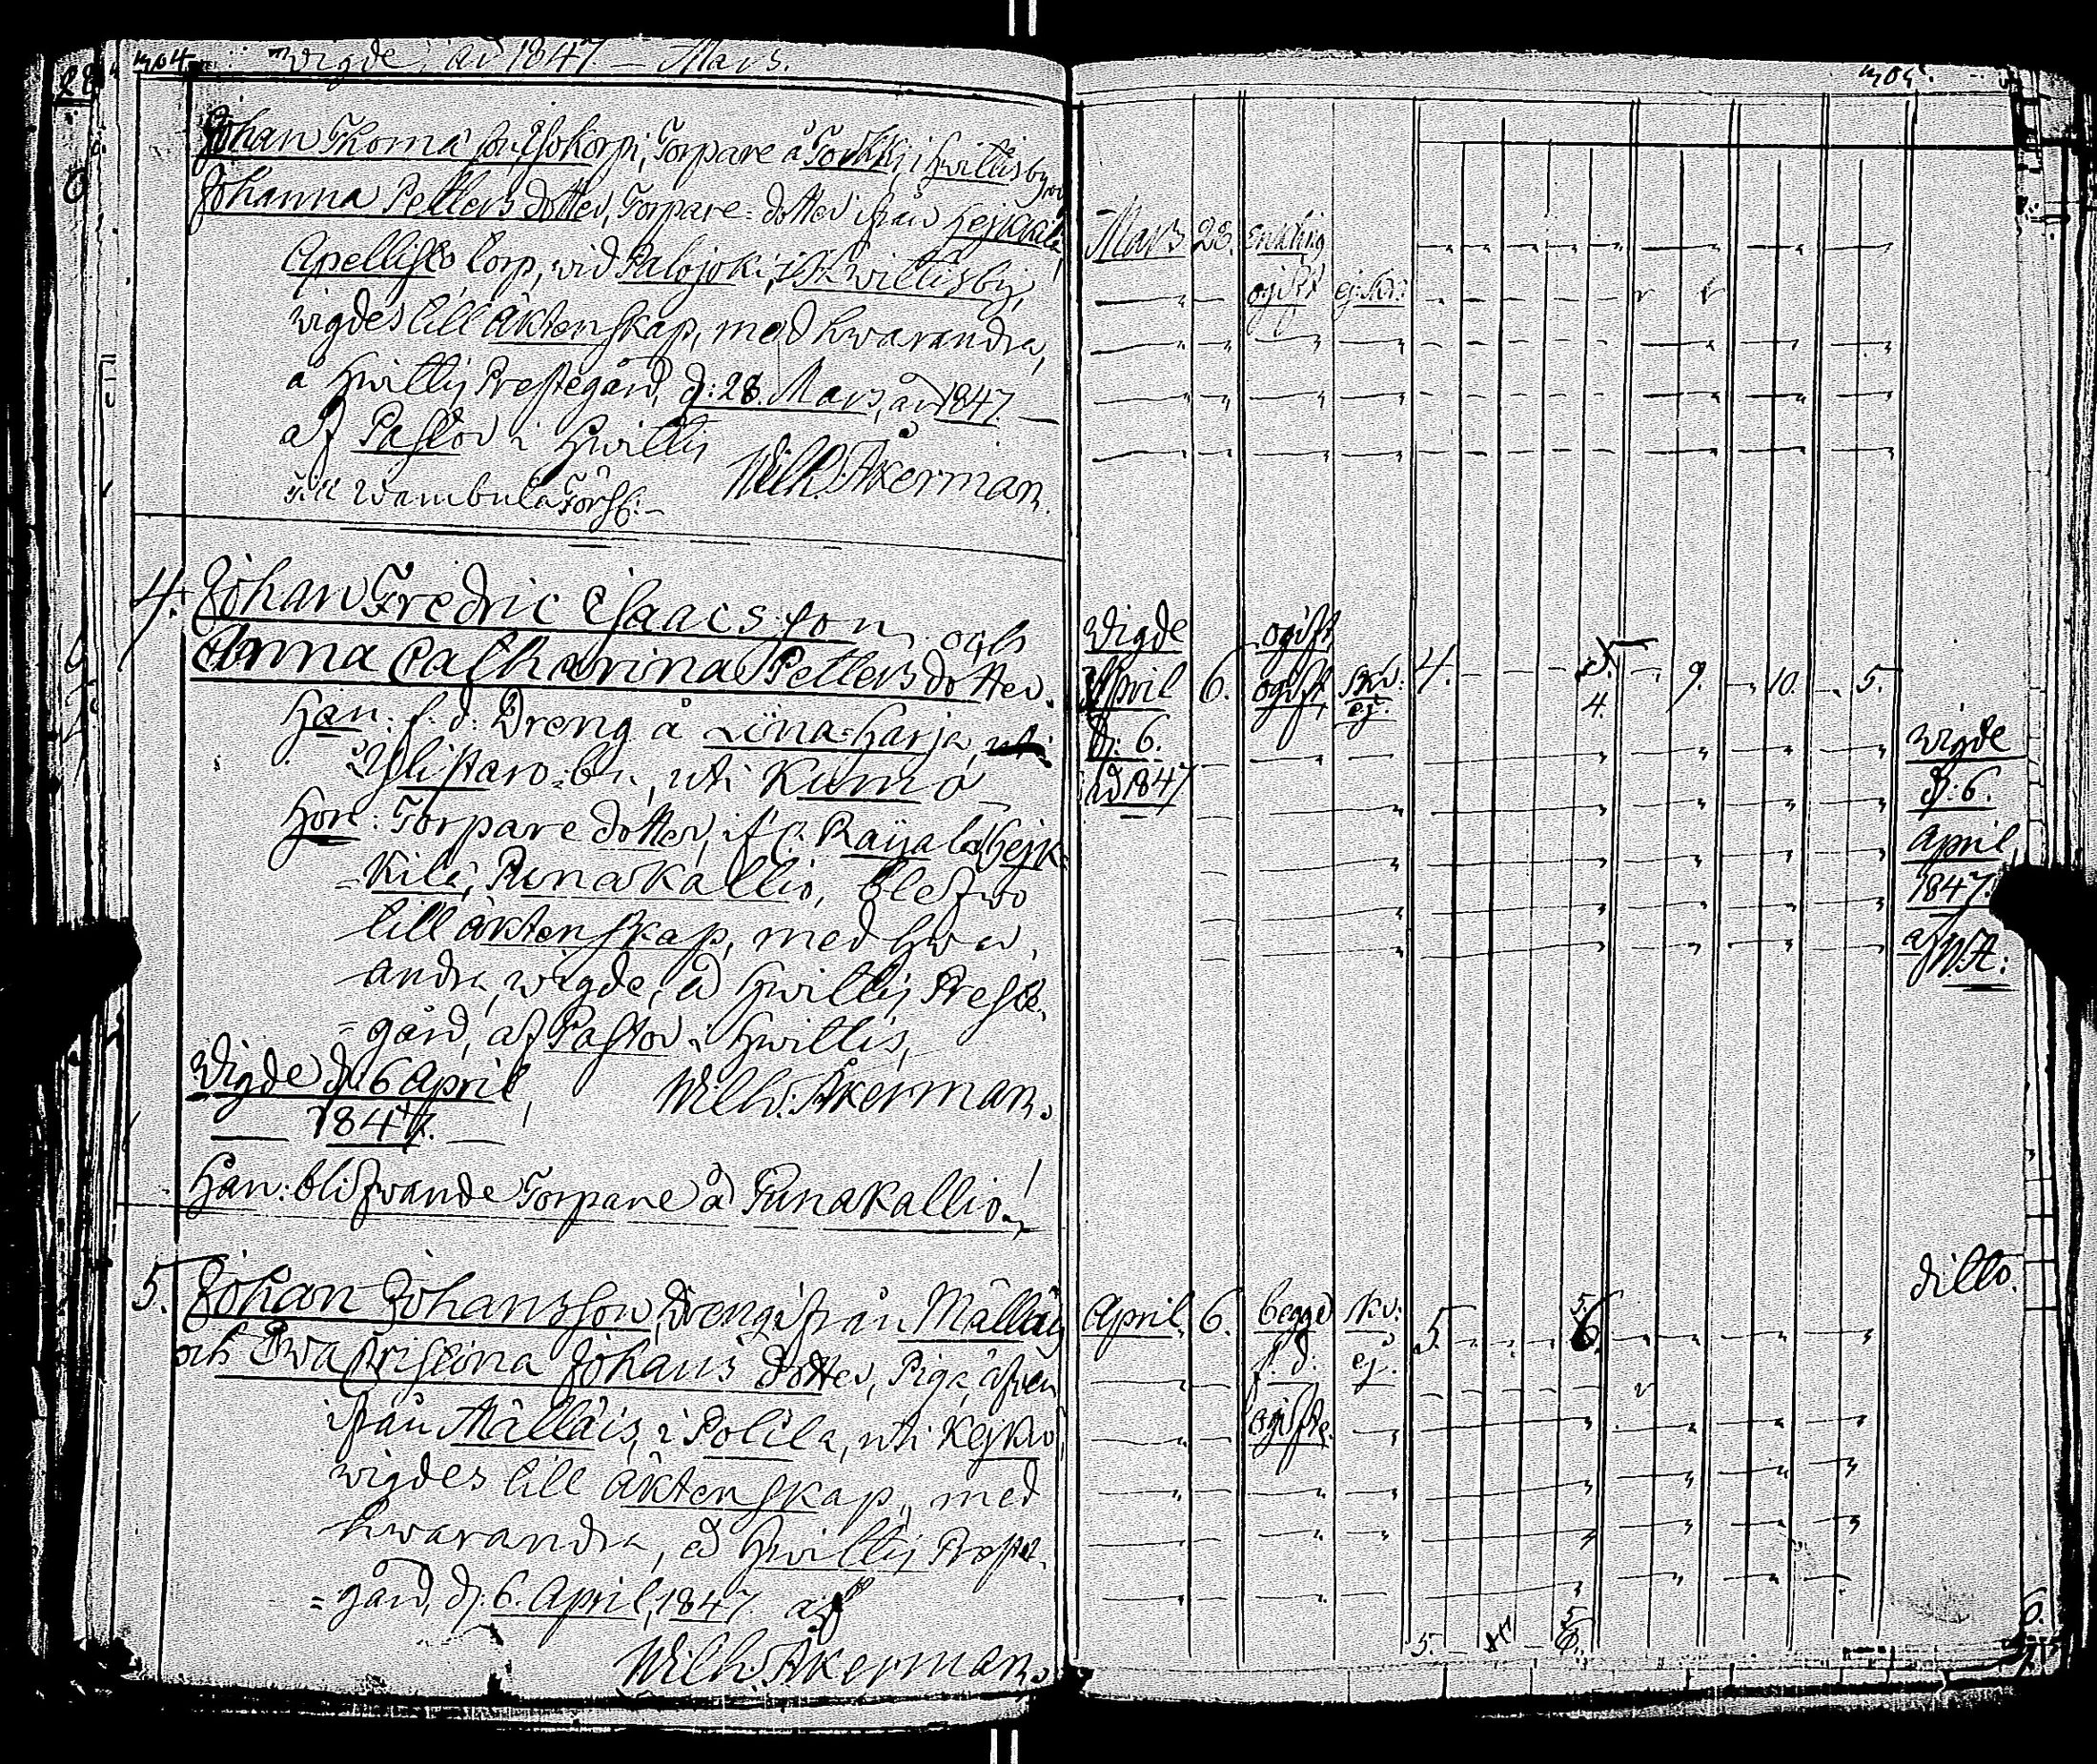 Wigde, åd 1847. — Mars.
Johan Thomæ son Isokorpi, Torpare å i Hwittisby,
Johanna Petters dotter, Torpare-dotter ifrån Hejkkilä,
torp, wid Palojoki, i Hwittisby,
wigdes till äktenskap, med hwarandra,
å Hwittis Prestegård, d: 28. Mars, åd 1847. —
af Pastor i Hwittis
Wilh: Åkerman.
Wambula Förs:
4. Johan Fredric Isaacs son, och
Anna Catharina Petters dotter.
Han: f. d. Dreng å Lina-Harja,
Ylistaro by, uti Kumo
Hon: Torpare dotter, ifr: Raijala Hejk-
=kilä, Punakallio, blefwo
till äktenskap, med hwar-
andra, wigde, å Hwittis Preste-
=gård, af Pastor i Hwittis,
Wigde d: 6 April,
1847.
Wilh: Åkerman.
Han: blifwande Torpare å Punakallio!
5. Johan Johansson, Dreng ifrån Mälläis
och Ewa Kristina Johans dotter, Piga, äfven
ifrån Mälläis, i Polila, uti Kejkiö,
wigdes till äktenskap, med
hwarandra, å Hwittis Prest-
=gård, d: 6. April, 1847. af
Wilh: Åkerman.
Mars 28. enkling
ogift ej. skr.
Wigde
April 6.
d: 6.
åd 1847
ogift
ogift skr: ej. 4. 4. 9. 10. 5.
wigde
d: 6.
April,
1847.
af W. Å:
April. 6. begge skr: 5. 5. 6.
f. d. ej.
ogifte.
ditto.
5. 5. 6.